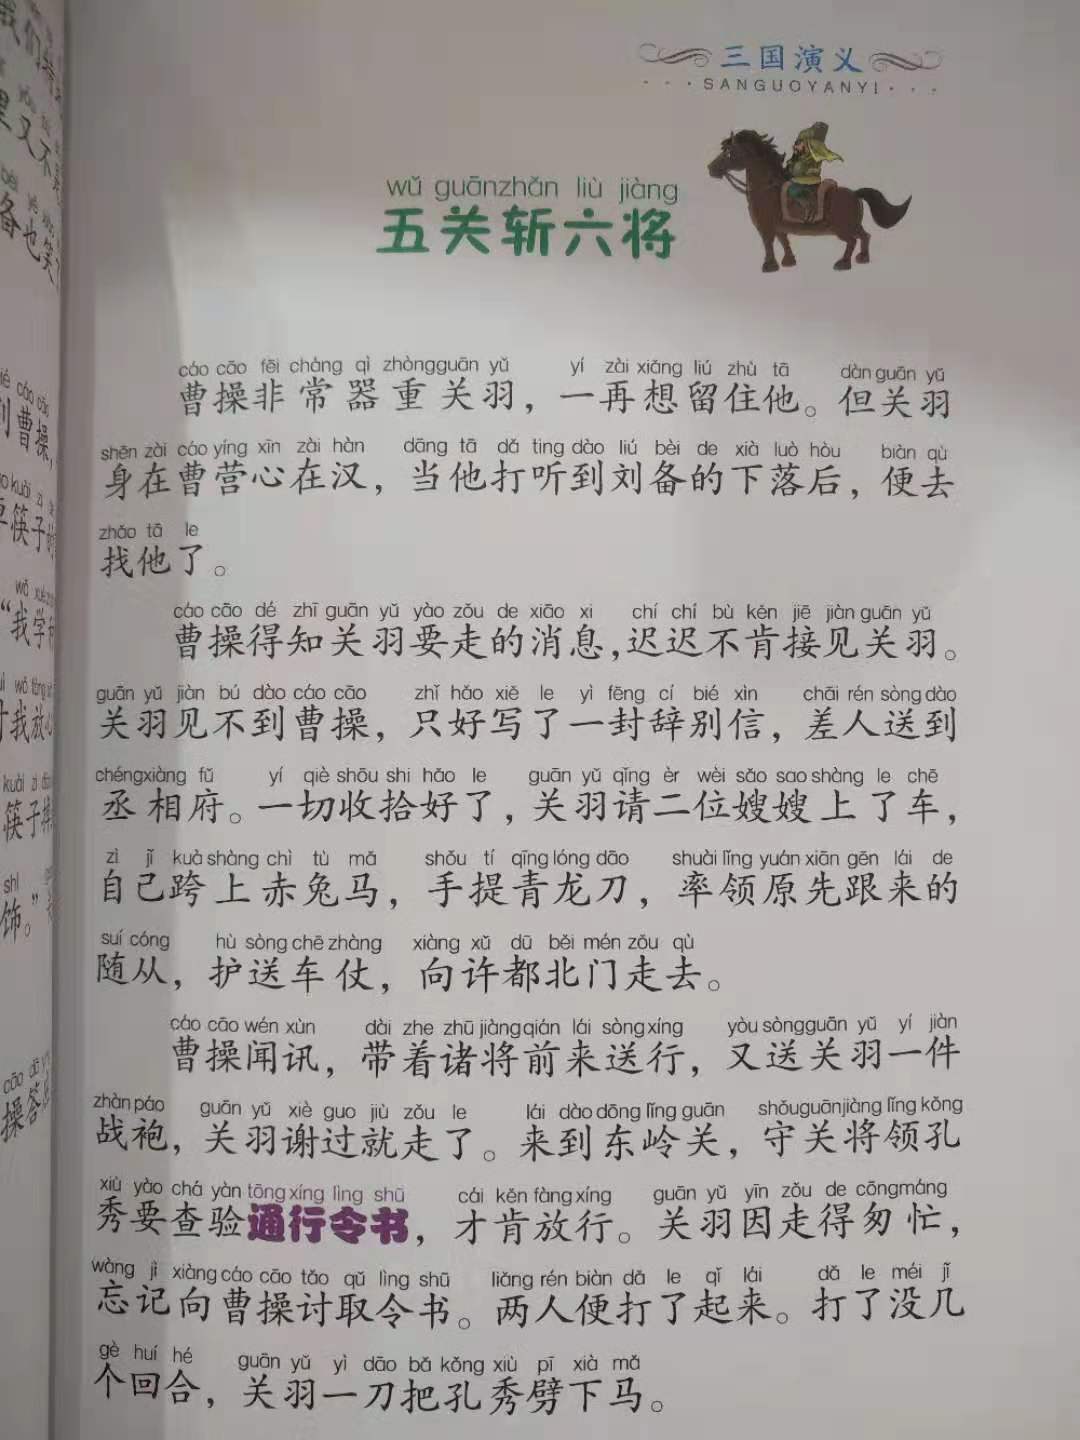 三国演义
SANGUOYANYI
wǔ guānzhǎn liù jiàng
五关斩六将
cáo cāo fēi cháng qì zhòngguān yǔ yí zài xiǎng liú zhù tā dàn guān yǔ
曹操非常器重关羽，一再想留住他。但关羽
shēn zài cáo yíng xīn zài hàn dāng tā dǎ ting dào liú bèi de xià luò hòu biàn qù
身在曹营心在汉，当他打听到刘备的下落后，便去
zhǎo tā le
找他了。
cáo cāo dé zhī guān yǔ yào zǒu de xiāo xi chí chí bù kěn jiē jiàn guān yǔ
曹操得知关羽要走的消息，迟迟不肯接见关羽。
guān yǔ jiàn bú dào cáo cāo zhǐ hǎo xiě le yì fēng cí bié xìn chāi rén sòng dào
关羽见不到曹操，只好写了一封辞别信，差人送到
chéngxiàng fǔ yí qiè shōu shi hǎo le guān yǔ qǐng èr wèi sǎo sao shàng le chē
丞相府。一切收拾好了，关羽请二位嫂嫂上了车，
zì jǐ kuà shàng chì tù mǎ shǒu tí qīng lóng dāo shuài lǐng yuán xiān gēn lái de
自己跨上赤兔马，手提青龙刀，率领原先跟来的
suí cóng hù sòng chē zhàng xiàng xǔ dū běi mén zǒu qù
随从，护送车仗，向许都北门走去。
cáo cāo wén xùn dài zhe zhū jiàng qián lái sòng xíng yòu sòng guān yǔ yí jiàn
曹操闻讯，带着诸将前来送行，又送关羽一件
zhàn páo guān yǔ xiè guo jiù zǒu le lái dào dōng lǐng guān shǒuguānjiàng lǐng kǒng
战袍，关羽谢过就走了。来到东岭关，守关将领孔
xiù yào chá yàn tōng xíng lìng shū cái kěn fàng xíng guān yǔ yīn zǒu de cōngmáng
秀要查验通行令书，才肯放行。关羽因走得匆忙，
wàng jì xiàng cáo cāo tǎo qǔ lìng shū liǎng rén biàn dǎ le qǐ lái dǎ le méi jǐ
忘记向曹操讨取令书。两人便打了起来。打了没几
gè huí hé guān yǔ yì dāo bǎ kǒng xiù pī xià mǎ
个回合，关羽一刀把孔秀劈下马。